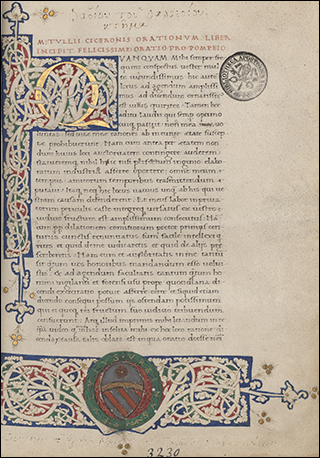 M·TVLLII CICERONIS ORATIONVM LIBER
INCIPIT FELICISSIME ORATIO PRO POMPEIO
QVANQVAM Mihi semper fre
quens conspectus uester mul
to iucundissimus hic autem
locus ad agendum amplissi
mus ad dicendum ornatissi
est uisus quirites Tamen hoc
aditu laudis qui semp optimo
cuiq patuit non mea
luntas sed uitae meae rationes ab ineunte etate suscep
te prohibuerunt Nam cum antea per etatem non
dum huius loci auctoritatem contingere auderem
statueremq nihil huc nisi perfectum ingenio elabo
ratum industria afferri oportere omne meum
tempus amicorum temporibus transmittendum
putaui Itaq neq hic locus uacuus unq ab his qui ue
stram causam defenderent Et meus labor in priua
torum periculis caste integreq uersatus ex uestro
iudicio fructum est amplissimum consecutus Na
cum pp dilationem comitiorum pretor primus cen
turiis cunctis renuntiatus sum facile intellexi q
rites et quid de me iudicaretis et quid de aliis pre
scriberetis Nam cum et auctoritatis in me tantu
sit qum uos honoribus mandandis esse uolui
stis & ad agendum facultatis tantum qum ho
mini uigilanti ex forensi usu prope quotidiana di
cendi exercitatio potuit afferre
dicendo consequi possum iis ostendam potissimum
qui ei quoq rei fructum suo iudicio tribuendum
censuerunt Atq illud in primis mihi letandum iu
re esse uideo q in hac insolita mihi ex hoc loco ratione di
cendi causa talis oblata est in qua oratio deesse nem
3230